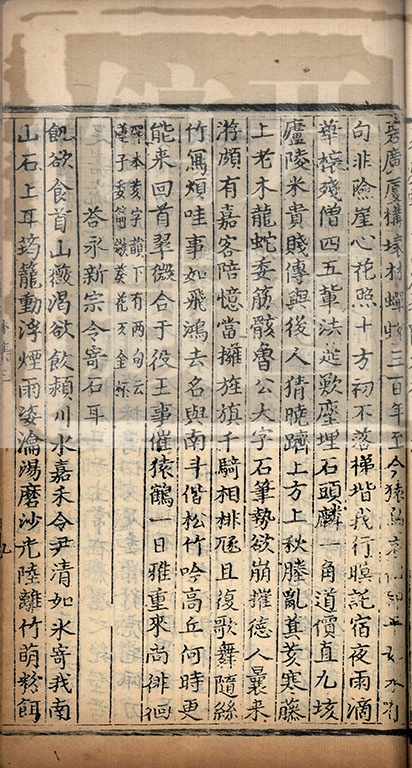 廣廈構壞材蟬蛻三百年至今猿鳥哀祖印平如水有
句非險崖心花照十方初不落梯堦我行暝託宿夜雨滴
華榱殘僧四五輩法筵歎塵埋石頭麟一角道價直九垓
廬陵米貴賤傳與後人猜曉躋上方上秋塍亂萁荄寒藤
上老木龍蛇委筋骸魯公大字石筆勢欲崩摧德人曩來
游頗有嘉客陪憶當擁旌旗千騎相排豗且復歌舞隨絲
竹寫煩哇事如飛鴻去名與南斗偕松竹吟高丘何時更
能來回首翠微合于役王事催猿鶴一日雅重來尚徘徊
碑本荄字韻下有兩句云
蓮子委箭鏃葵花仄金杯
荅永新宗令寄石耳
飢欲食首山薇渴欲飲潁川水嘉禾令尹清如氷寄我南
山石上耳筠籠動浮煙雨姿瀹湯磨沙光陸離竹萌粉餌